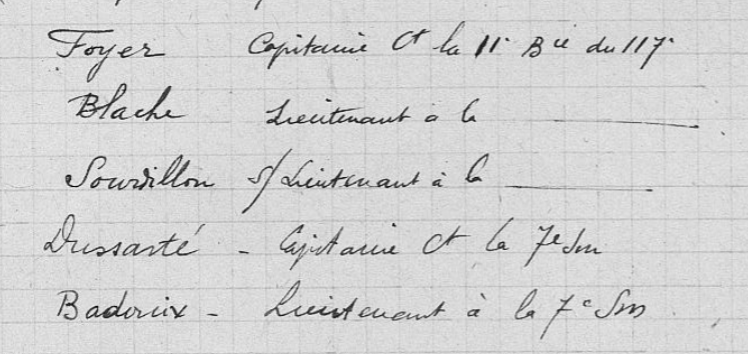 Foyer Capitaine Ct la 11e Bie du 117e
Blache Lieutenant à la ———
Sourdillon s/Lieutenant à la ———
Dussarté - Capitaine Ct la 7e Sm
Badoux - Lieutenant à la 7e Sm